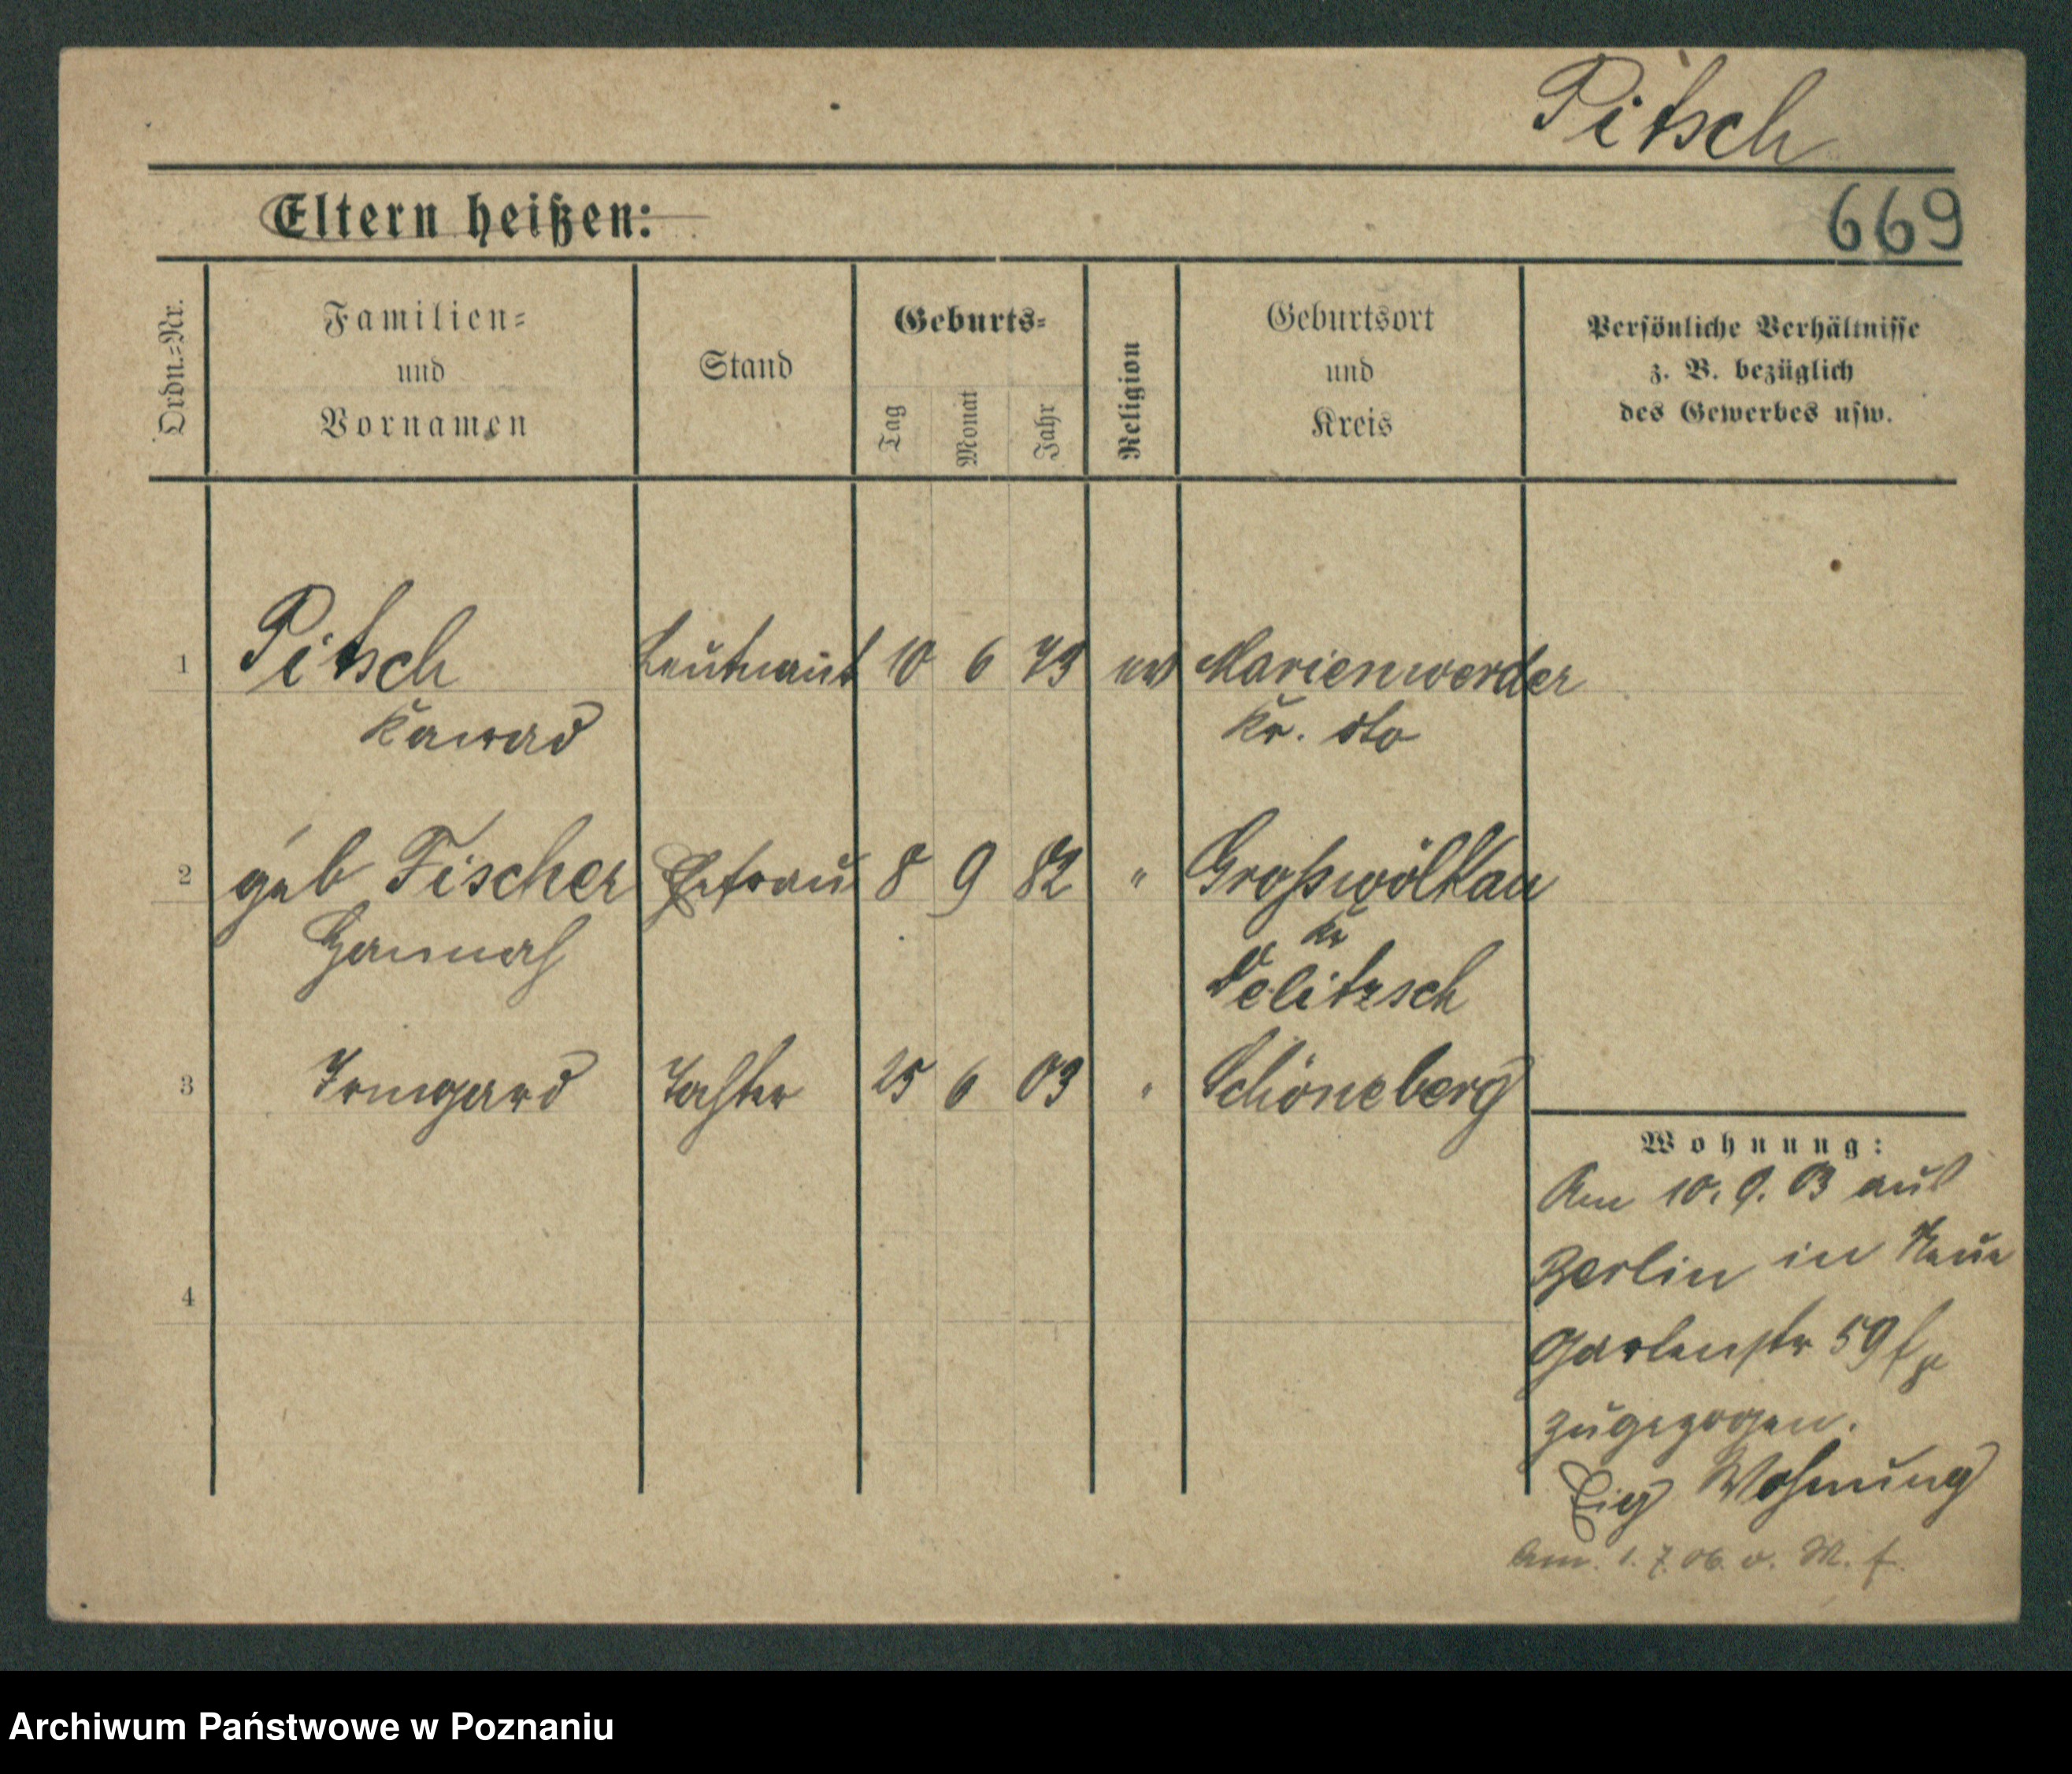 Pitsch
Eltern heißen:
669
Ordn.-Nr.
Familien-
und
Vornamen
Stand
Geburts-
Tag
Monat
Jahr
Religion
Geburtsort
und
Kreis
Persönliche Verhältnisse
z. B. bezüglich
des Gewerbes usw.
1 Pitsch Leutnant 10 6 79 ev Marienwerder
Konrad Kr. dto
2 geb Fischer Ehefrau 8 9 82 " Großwölkau
Hannah Kr
Delitzsch
3 Irmgard Tochter 25 6 03 " Schöneberg
Wohnung:
Am 10. 9. 03 aus
Berlin in Neue
Gartenstr 59
zugezogen.
Eig Wohnung
4
Am. 1. 7. 06. v. M. f.
Archiwum Państwowe w Poznaniu